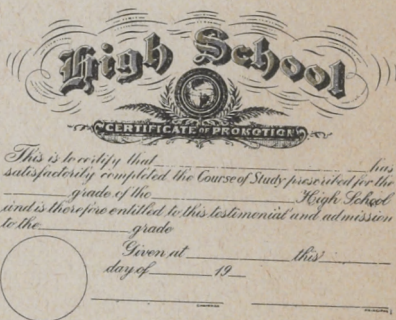 High School
CERTIFICATE OF PROMOTION
This is to certify that has
satisfactorily completed the Course of Study prescribed for the
grade of the High School
and is therefore entitled to this testimonial and admission
to the grade
Given at this
day of 19